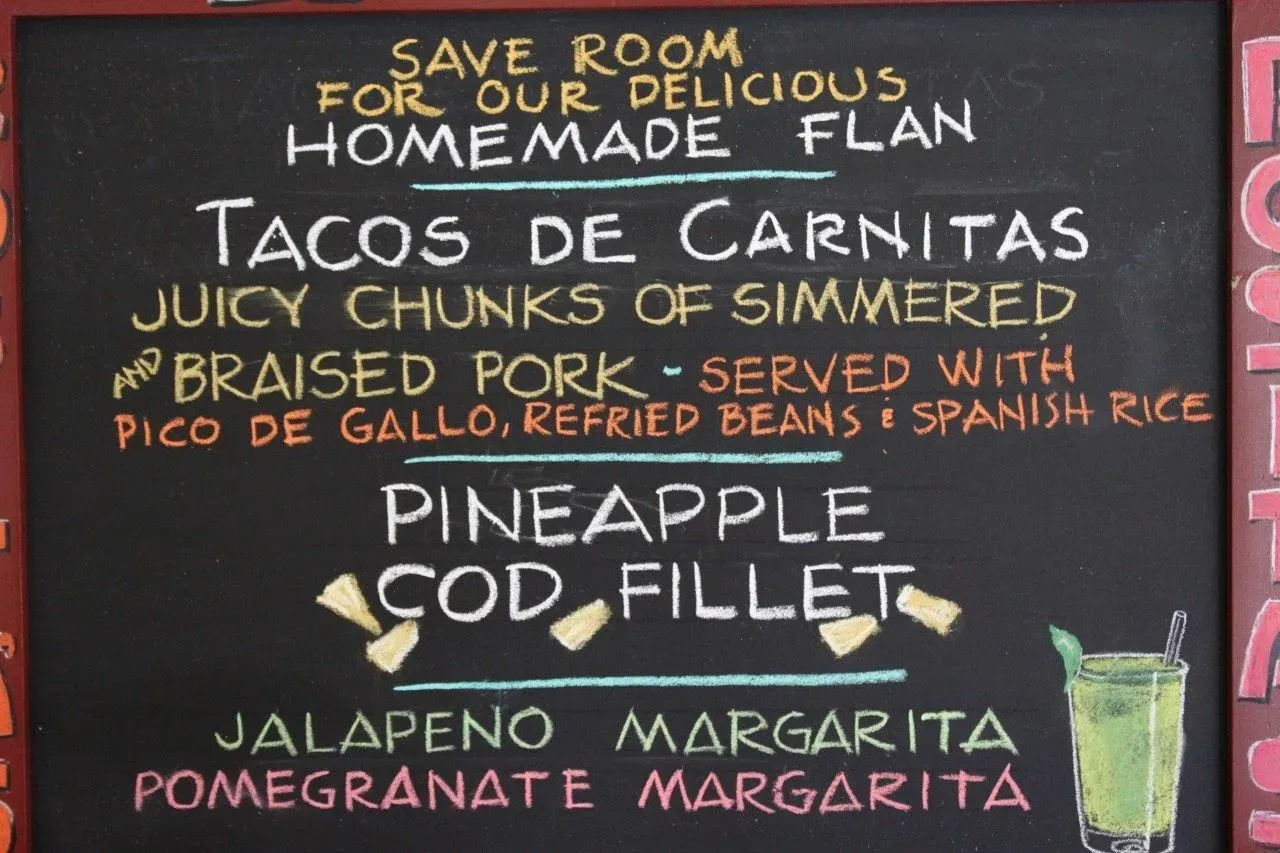 SAVE ROOM
FOR OUR DELICIOUS
HOMEMADE FLAN
TACOS DE CARNITAS
JUICY CHUNKS OF SIMMERED
AND BRAISED PORK - SERVED WITH
PICO DE GALLO, REFRIED BEANS & SPANISH RICE
PINEAPPLE
COD FILLET
JALAPENO MARGARITA
POMEGRANATE MARGARITA